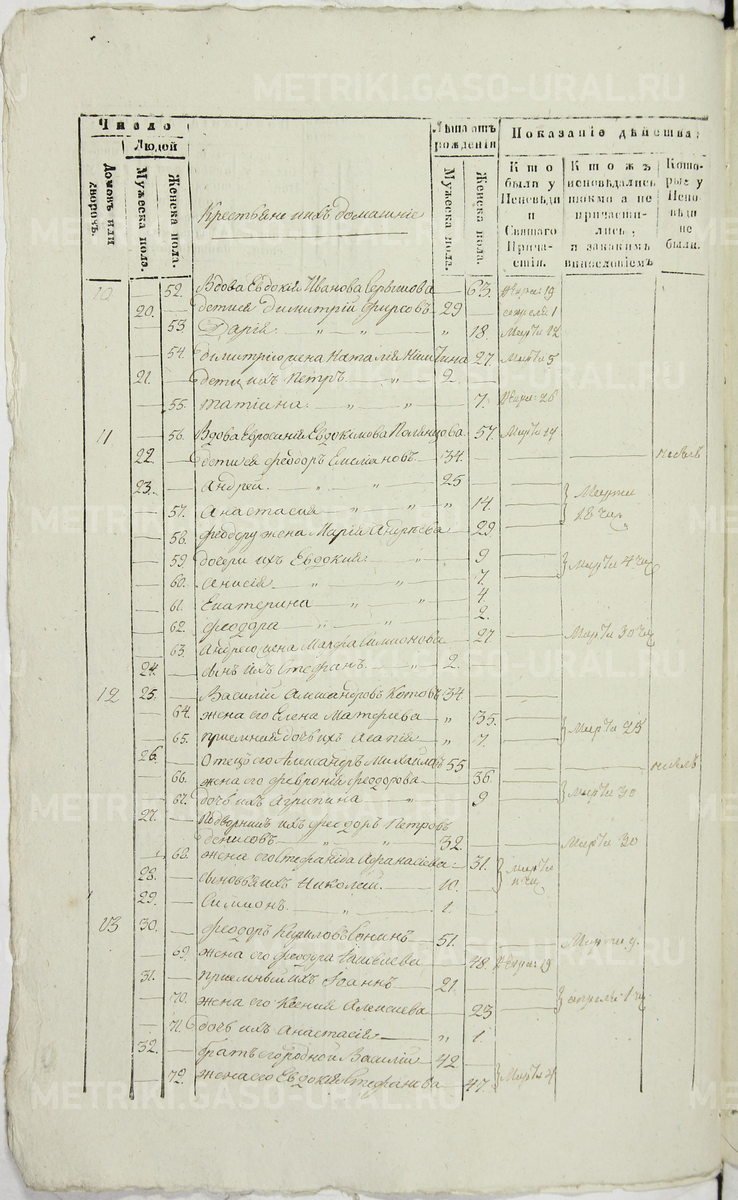 METRIKI.GASO-URAL.RU
Число
Людей
Домовъ или дворовъ.
Мужеска полa.
Женска пола.
Крестьяне и ихъ домашніе
Лѣта отъ рожденія
Мужеска пола.
Женска пола.
Показаніе дѣйства:
Кто были у Исповѣди и Святаго Причастія.
Кто жъ исповѣдались токмо а не причастились, и за какимъ винословіемъ
Которые у Исповѣди не были.
10 52. Вдова Евдокія Иванова 63. 19
20. дети ея Димитрій Фирсовъ 29 апреля 1
53 Дарія „ „ „ 18. Марта 12
54. Димитрію жена Наталія 27. Марта 5
21. дети ихъ Петръ „ 2.
55. Татіана „ „ 7. 28
11 56. Вдова Евдокимова 57. Марта 14
22. дети ея Феодоръ Емиліановъ 34.
23. Андрей „ „ 25
57. Анастасія „ „ „ 14. Марта 18 чи.
58. Феодору жена Марія Андреева 29
59 дочери ихъ Евдокія „ 9 Марта 4 чи.
60. Анисія „ „ 7.
61. Екатерина „ „ 4.
62. Феодора „ „ 2.
63. Андрею жена Марфа Симионова 27 Марта 30 чи.
24. сынъ ихъ Стефанъ „ 2.
12 25. Василій Александровъ Котовъ 34
64. жена его Елена Матфеева „ 35. Марта 25
65. пріемная дочь ихъ Агапія „ 7.
26. Отецъ его Александръ Михайловъ 55
66. жена его Февронія Феодорова 36.
67. дочь ихъ Агрипина „ 9 Марта 30
27. Подворникъ ихъ Феодоръ Петровъ
Денисовъ „ „ 32. Марта 30
68. жена его Стефанида Афанасіева 31. Марта
28. сыновья ихъ Николай 10.
29. Симионъ „ 1.
13 30. Феодоръ 51. Марта 9.
69. жена его Феодора 48. 19
31. пріемный ихъ Іоаннъ 21.
70. жена его Ксения Алексиева 23 апреля 1 чи.
71. дочь ихъ Анастасія „ 1
32. братъ сродной Василій 42
72. жена его Евдокія Стефанова 47. Марта 4